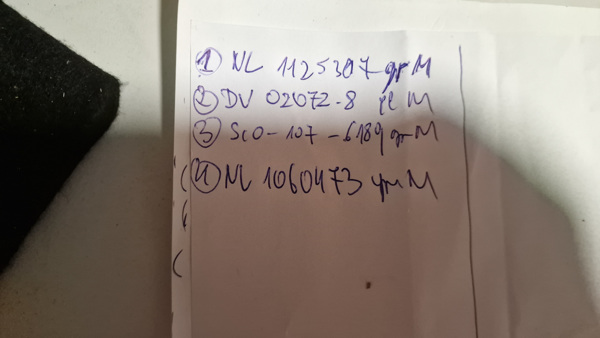 ① NL 1125397 gr M
② DV 02072-8 M
③ SCO-107-6189 gr M
④ NL 1060473 M